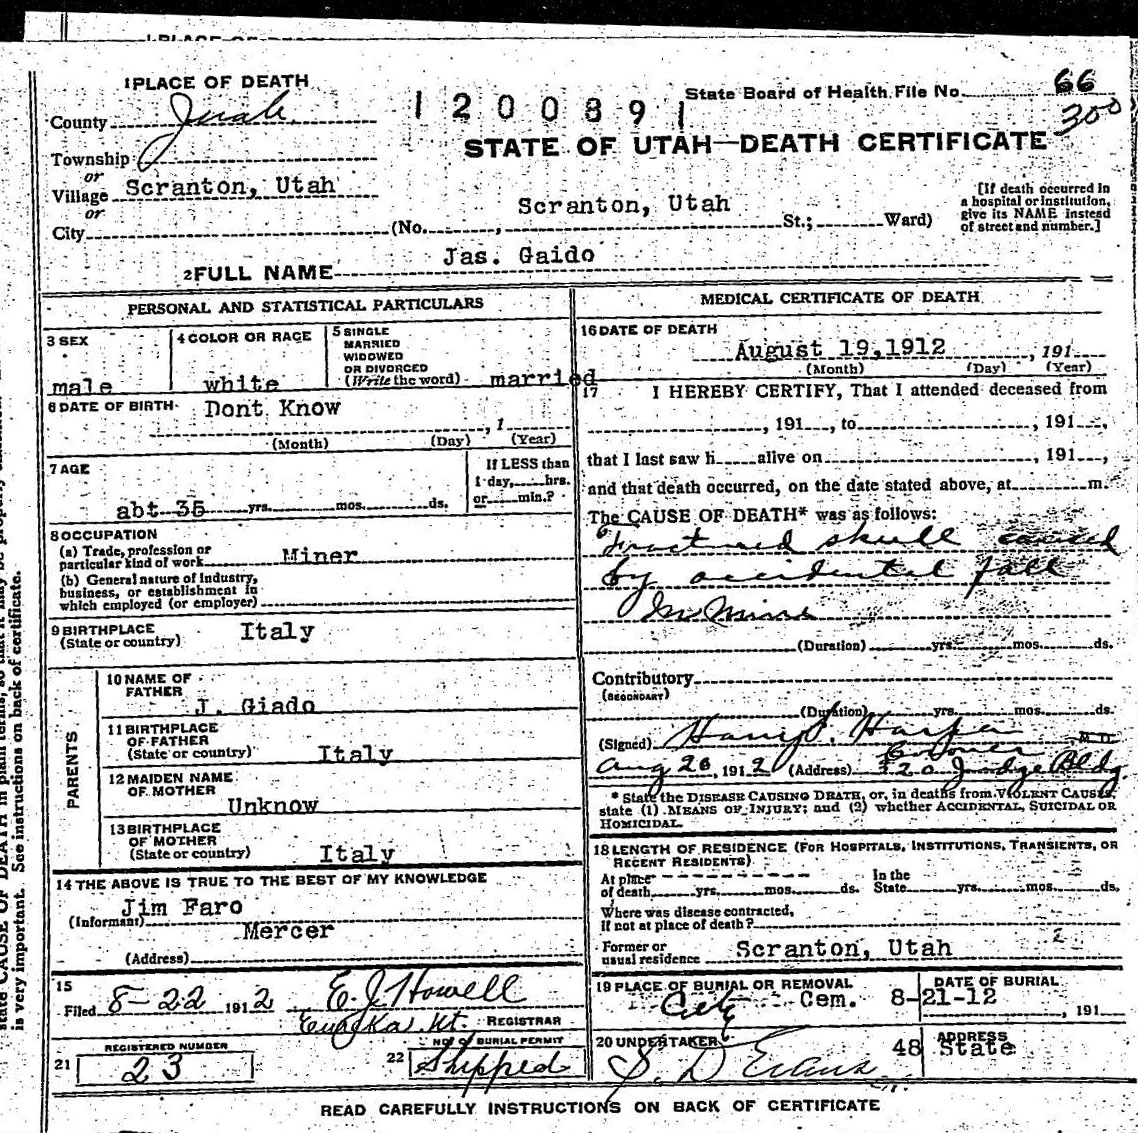 1 PLACE OF DEATH
County Juab
1200891
State Board of Health File No. 66
300
STATE OF UTAH—DEATH CERTIFICATE
Township
or
Village Scranton, Utah
or
City (No. Scranton, Utah St.; Ward)
[If death occurred in
a hospital or institution,
give its NAME instead
of street and number.]
2 FULL NAME Jas. Gaido
PERSONAL AND STATISTICAL PARTICULARS
3 SEX
male
4 COLOR OR RACE
white
5 SINGLE
MARRIED
WIDOWED
OR DIVORCED
(Write the word) married
6 DATE OF BIRTH Dont Know
, 1
(Month) (Day) (Year)
7 AGE
abt 35 yrs. mos. ds.
If LESS than
1 day, hrs.
or min.?
8 OCCUPATION
(a) Trade, profession or
particular kind of work Miner
(b) General nature of Industry,
business, or establishment in
which employed (or employer)
9 BIRTHPLACE
(State or country) Italy
PARENTS
10 NAME OF
FATHER
J. Giado
11 BIRTHPLACE
OF FATHER
(State or country) Italy
12 MAIDEN NAME
OF MOTHER
Unknow
13 BIRTHPLACE
OF MOTHER
(State or country) Italy
14 THE ABOVE IS TRUE TO THE BEST OF MY KNOWLEDGE
(Informant) Jim Faro
Mercer
(Address)
15
Filed 8-22 1912 E. J. Howell
Eureka Ut. REGISTRAR
REGISTERED NUMBER
21 23
NO. OF BURIAL PERMIT
22 Shipped
MEDICAL CERTIFICATE OF DEATH
16 DATE OF DEATH
August 19,1912 , 191
(Month) (Day) (Year)
17 I HEREBY CERTIFY, That I attended deceased from
, 191 , to , 191 ,
that I last saw h alive on , 191 ,
and that death occurred, on the date stated above, at m.
The CAUSE OF DEATH* was as follows:
Fractured skull caused
by accidental fall
In Mine
(Duration) yrs. mos. ds.
Contributory
(SECONDARY)
(Duration) yrs. mos. ds.
(Signed) Harry S. Harper M.D.
Coroner
Aug 20, 1912 (Address) 320 Judge Bldg.
* State the DISEASE CAUSING DEATH, or, in deaths from VIOLENT CAUSES,
state (1) MEANS OF INJURY; and (2) whether ACCIDENTAL, SUICIDAL OR
HOMICIDAL.
18 LENGTH OF RESIDENCE (FOR HOSPITALS, INSTITUTIONS, TRANSIENTS, OR
RECENT RESIDENTS)
At place
of death yrs. mos. ds.
In the
State yrs. mos. ds.
Where was disease contracted,
if not at place of death?
Former or
usual residence Scranton, Utah
2
19 PLACE OF BURIAL OR REMOVAL
City Cem.
DATE OF BURIAL
8-21-12
, 191
20 UNDERTAKER
S. D. Evans
ADDRESS
48 State
READ CAREFULLY INSTRUCTIONS ON BACK OF CERTIFICATE
is very important. See instructions on back of certificate.